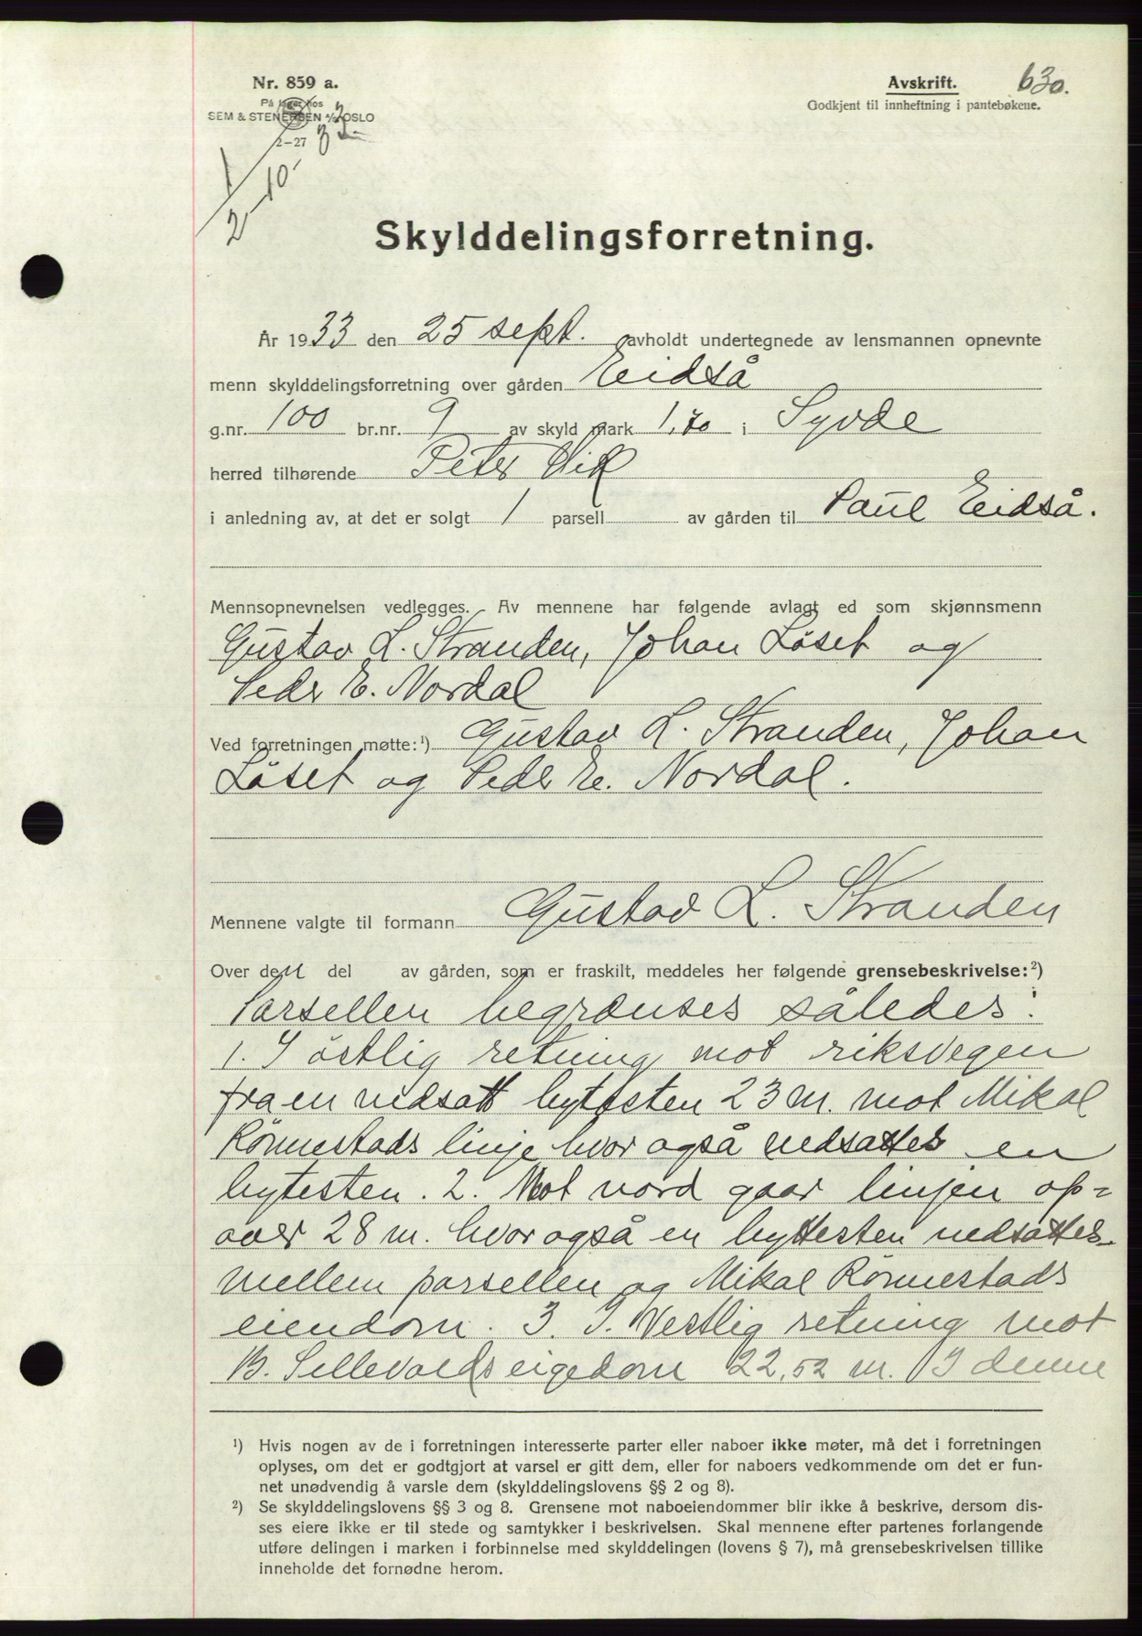 Nr. 859 a.
På lager hos
SEM & STENERSEN A/S OSLO
2—27
1/2-10-33
Avskrift.
630.
Godkjent til innheftning i pantebøkene.
Skylddelingsforretning.
År 1933 den 25 sept. avholdt undertegnede av lensmannen opnevnte
menn skylddelingsforretning over gården Eidså
g.nr. 100 br.nr. 9 av skyld mark 1,70 i Syvde
herred tilhørende Peter Vik
i anledning av, at det er solgt 1 parsell av gården til Paul Eidså.
Mennsopnevnelsen vedlegges. Av mennene har følgende avlagt ed som skjønnsmenn
Gustav L. Stranden, Johan Löset og
Peder E. Nordal
Ved forretningen møtte:¹) Gustav L. Stranden, Johan
Löset og Peder E. Nordal.
Mennene valgte til formann Gustav L. Stranden
Over den del av gården, som er fraskilt, meddeles her følgende grensebeskrivelse:²)
Parsellen begrænses således:
1. I östlig retning mot riksvegen
fra en nedsatt bytesten 23 m. mot Mikal
Rönnestads linje hvor også nedsattes en
bytesten. 2. Mot nord gaar linjen op=
over 28 m. hvor også en byttesten nedsattes
mellem parsellen og Mikal Rönnestads
eiendom. 3. I. Vestlig retning mot
B. Sellevolds eigedom 22,52 m. I denne
¹) Hvis nogen av de i forretningen interesserte parter eller naboer ikke møter, må det i forretningen
oplyses, om det er godtgjort at varsel er gitt dem, eller for naboers vedkommende om det er fun-
net unødvendig å varsle dem (skylddelingslovens §§ 2 og 8).
²) Se skylddelingslovens §§ 3 og 8. Grensene mot naboeiendommer blir ikke å beskrive, dersom dis-
ses eiere ikke er til stede og samtykker i beskrivelsen. Skal mennene efter partenes forlangende
utføre delingen i marken i forbinnelse med skylddelingen (lovens § 7), må grensebeskrivelsen tillike
inneholde det fornødne herom.